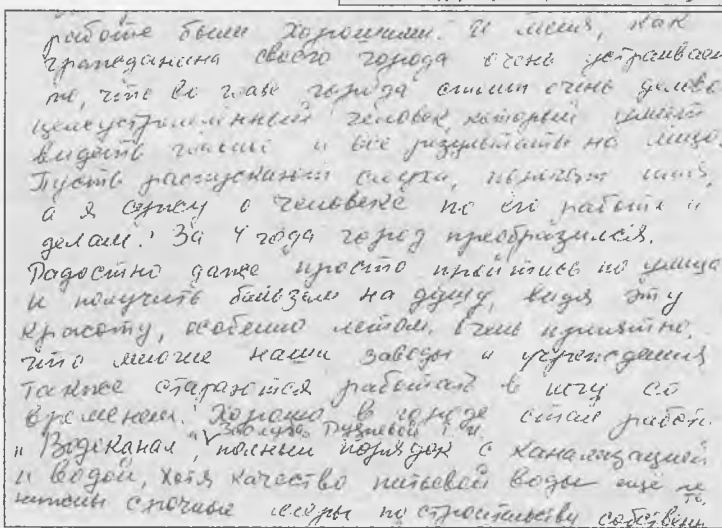 работе были хорошими. И меня, как
гражданина своего города очень устраивает
то, что во главе города стоит очень делово
целеустремлённый человек, который умеет
видеть главное и все результаты на лицо.
Пусть распускают слухи,
а я сужу о человеке по его работе и
делам! За 4 года город преобразился.
Радостно даже просто пройтись по улица
и получить бальзам на душу, видя эту
красоту, особенно летом. Очень приятно,
что многие наши заводы и учреждения
также стараются работать в ногу со
временем. Хорошо в городе стал работ.
"Водоканал", заслуга полный порядок с канализацией
и водой, хотя качество питьевой воды еще не
то, нужны срочные меры по строительству собственн